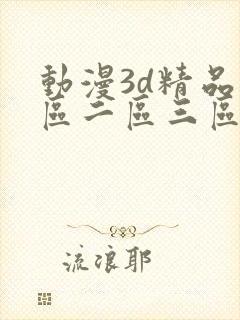 動漫3d精品
區二區三區
流浪耶